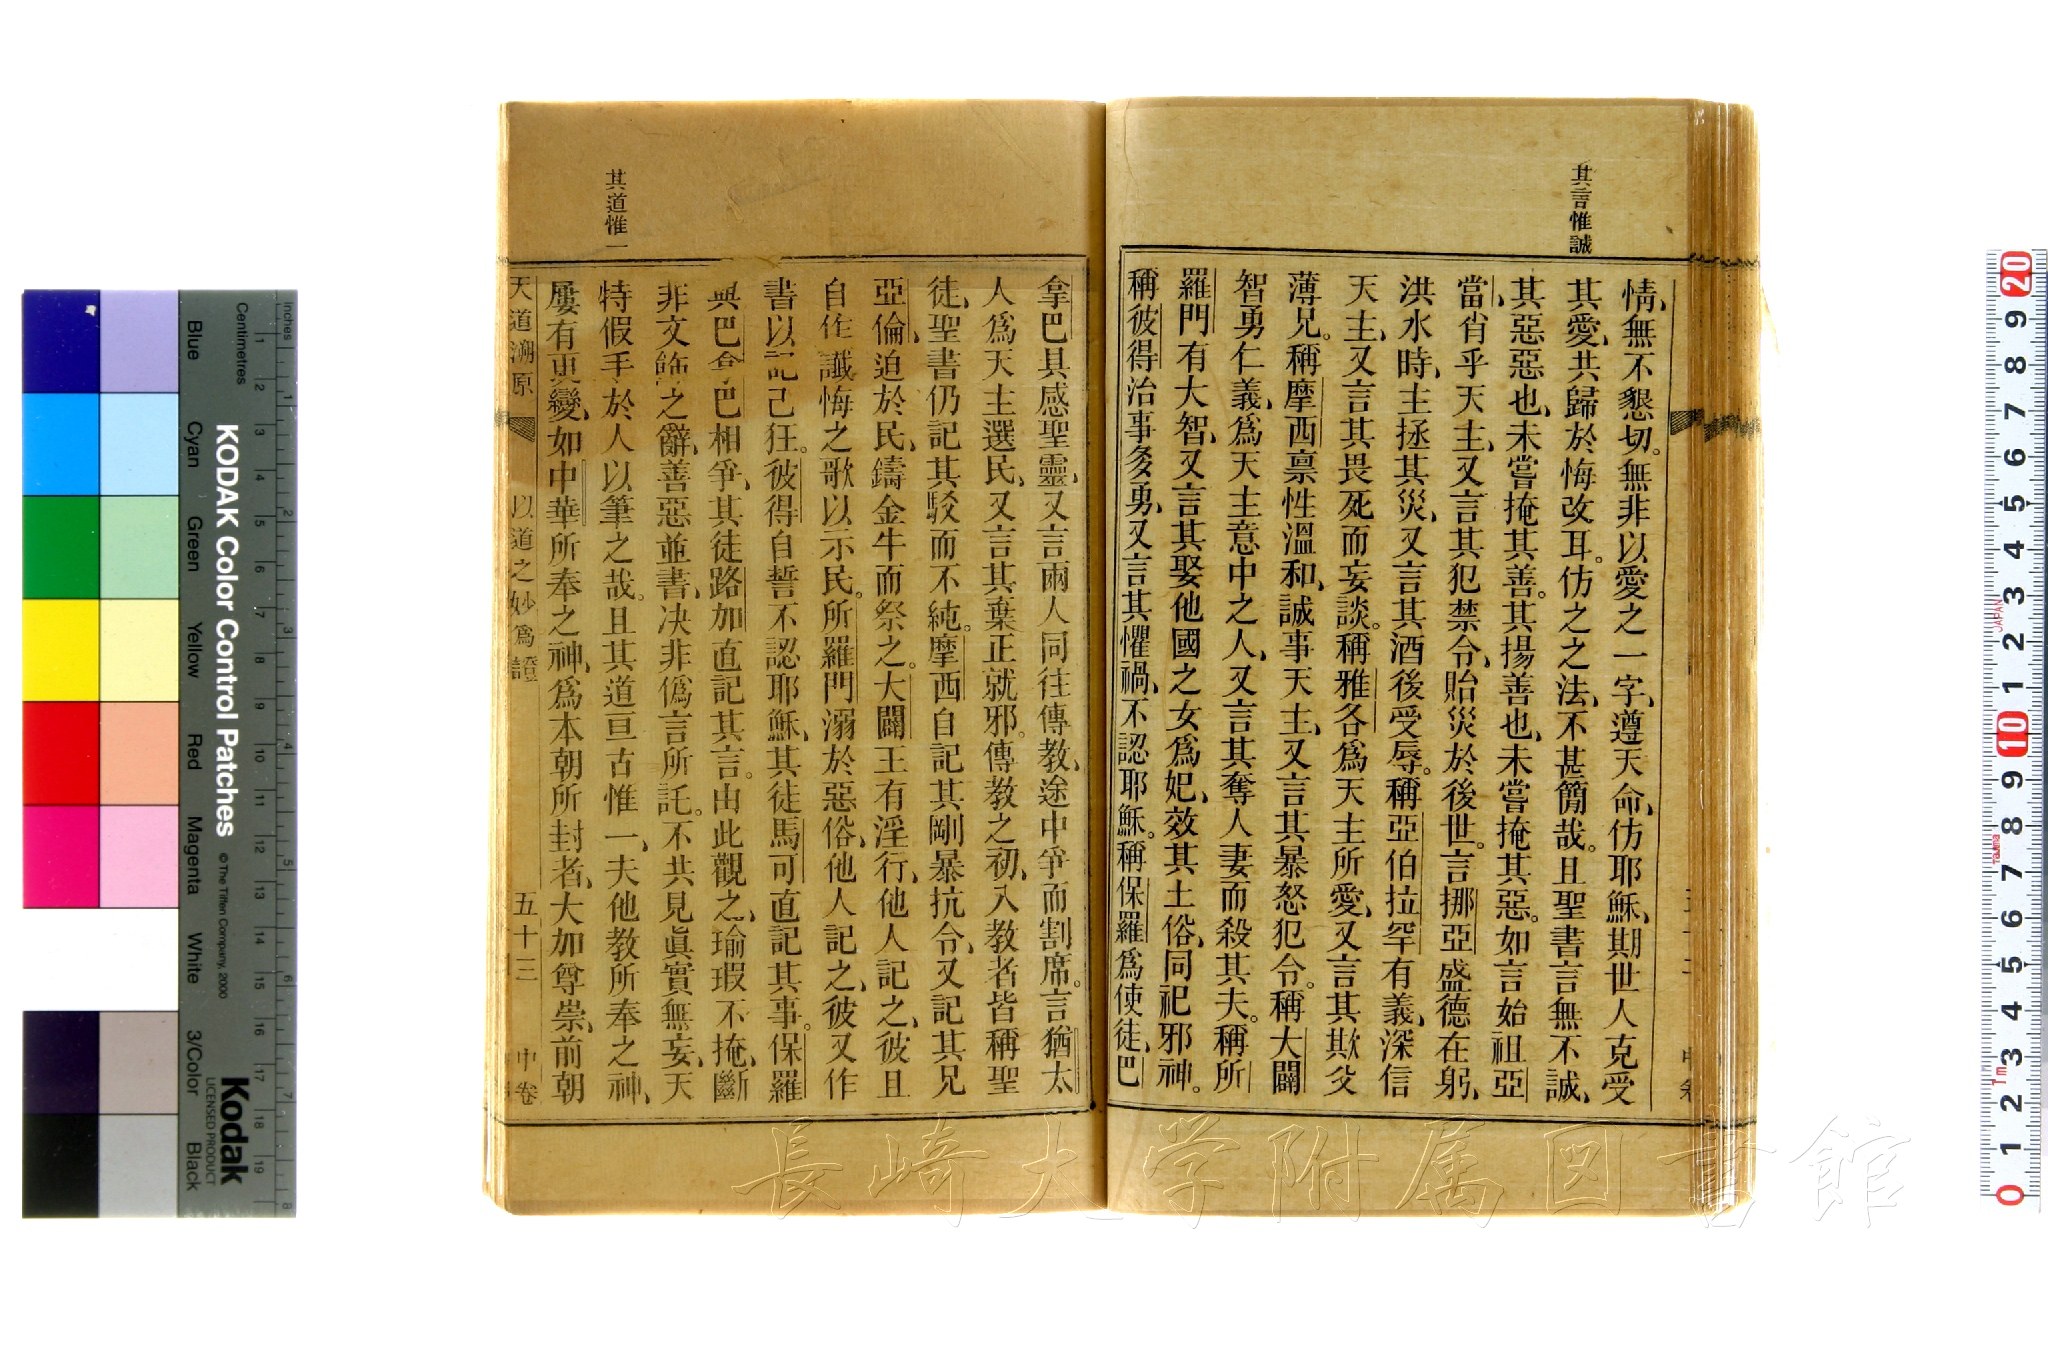 其言惟誠
情、無不懇切。無非以愛之一字、遵天命、仿耶穌、期世人克受
其愛、共歸於悔改耳。仿之之法、不甚簡哉。且聖書言無不誠、
其惡惡也、未嘗掩其善。其揚善也、未嘗掩其惡。如言始祖亞
當、肖乎天主、又言其犯禁令、貽災於後世。言挪亞盛德在躬、
洪水時、主拯其災、又言其酒後受辱。稱亞伯拉罕有義、深信
天主、又言其畏死而妄談。稱雅各爲天主所愛、又言其欺父
薄兄。稱摩西禀性溫和、誠事天主、又言其暴怒犯令。稱大闢
智勇仁義、爲天主意中之人、又言其奪人妻而殺其夫。稱所
羅門有大智、又言其娶他國之女爲妃、效其土俗、同祀邪神。
稱彼得治事多勇、又言其懼禍、不認耶穌。稱保羅爲使徒、巴
拿巴具感聖靈、又言兩人同往傳教、途中爭而割席。言猶太
人爲天主選民、又言其棄正就邪。傳教之初、入教者皆稱聖
徒、聖書仍記其駁而不純。摩西自記其剛暴抗令、又記其兄
亞倫、迫於民、鑄金牛而祭之。大闢王有淫行、他人記之、彼且
自作讖悔之歌以示民。所羅門溺於惡俗、他人記之、彼又作
書以記己狂。彼得自誓不認耶穌、其徒馬可直記其事。保羅
與巴拿巴相爭、其徒路加直記其言。由此觀之、瑜瑕不掩、斷
非文飾之辭、善惡並書、決非僞言所託。不共見眞實無妄、天
特假手於人以筆之哉。且其道亘古惟一、夫他教所奉之神、
屢有更變、如中華所奉之神、爲本朝所封者、大加尊崇、前朝
其道惟一
天道溯原 以道之妙爲證 五十三 中卷
KODAK Color Control Patches
©The Tiffen Company, 2000
Kodak
LICENSED PRODUCT
Inches
Centimetres
Blue
Cyan
Green
Yellow
Red
Magenta
White
3/Color
Black
JAPAN
長崎大学附属図書館